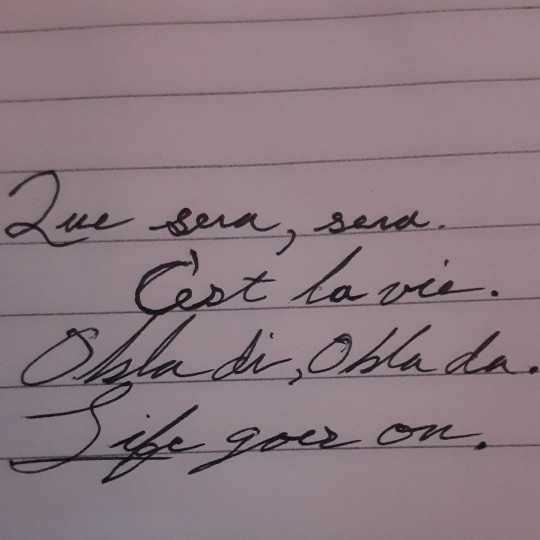 Que sera, sera.
C'est la vie.
Obla di, Obla da.
Life goes on.